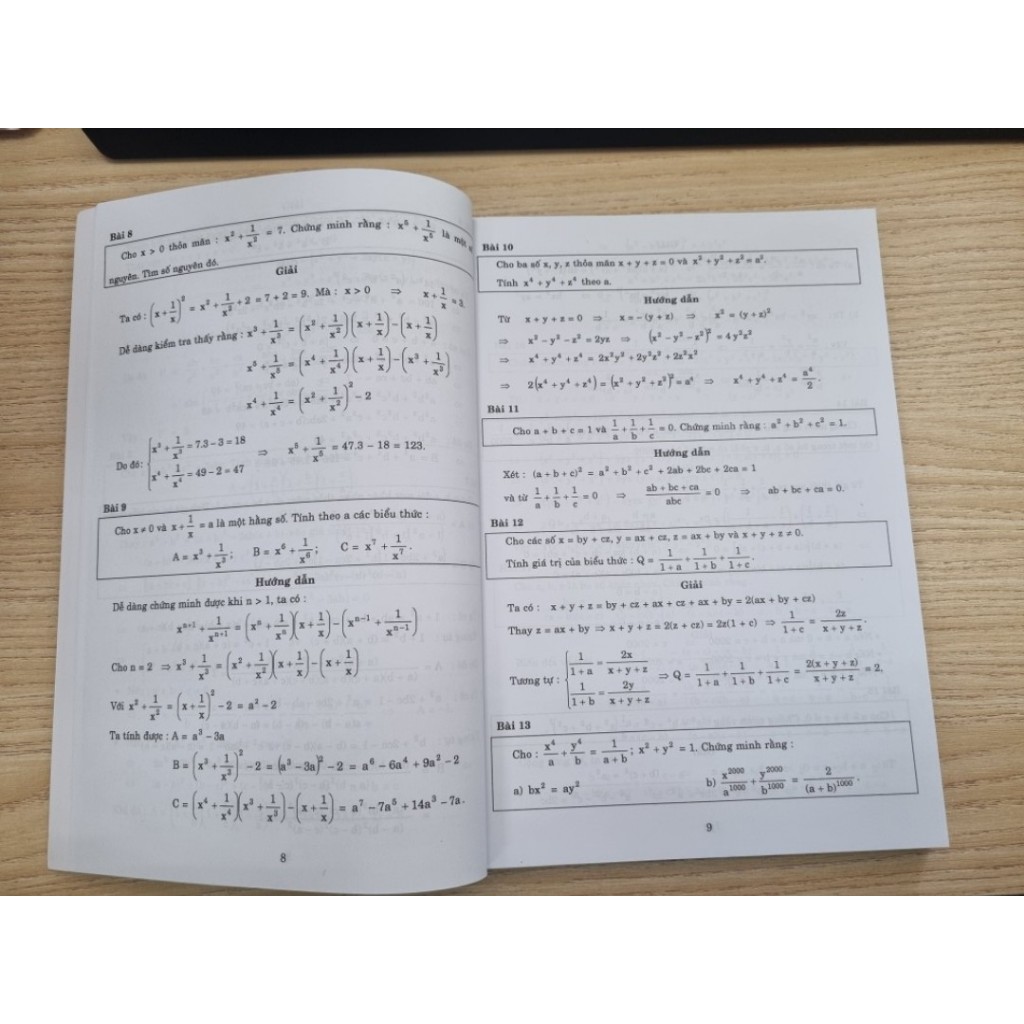 Bài 8
Cho x > 0 thỏa mãn : x² + 1/x² = 7. Chứng minh rằng : x⁵ + 1/x⁵ là một
nguyên. Tìm số nguyên đó.
Giải
Ta có : (x + 1/x)² = x² + 1/x² + 2 = 7 + 2 = 9. Mà : x > 0 ⇒ x + 1/x = 3.
Dễ dàng kiểm tra thấy rằng : x³ + 1/x³ = (x² + 1/x²)(x + 1/x) − (x + 1/x)
x⁵ + 1/x⁵ = (x⁴ + 1/x⁴)(x + 1/x) − (x³ + 1/x³)
x⁴ + 1/x⁴ = (x² + 1/x²)² − 2
Do đó: { x³ + 1/x³ = 7.3 − 3 = 18
x⁴ + 1/x⁴ = 49 − 2 = 47 ⇒ x⁵ + 1/x⁵ = 47.3 − 18 = 123.
Bài 9
Cho x ≠ 0 và x + 1/x = a là một hằng số. Tính theo a các biểu thức :
A = x³ + 1/x³ ; B = x⁶ + 1/x⁶ ; C = x⁷ + 1/x⁷ .
Hướng dẫn
Dễ dàng chứng minh được khi n > 1, ta có :
xⁿ⁺¹ + 1/xⁿ⁺¹ = (xⁿ + 1/xⁿ)(x + 1/x) − (xⁿ⁻¹ + 1/xⁿ⁻¹)
Cho n = 2 ⇒ x³ + 1/x³ = (x² + 1/x²)(x + 1/x) − (x + 1/x)
Với x² + 1/x² = (x + 1/x)² − 2 = a² − 2
Ta tính được : A = a³ − 3a
B = (x³ + 1/x³)² − 2 = (a³ − 3a)² − 2 = a⁶ − 6a⁴ + 9a² − 2
C = (x⁴ + 1/x⁴)(x³ + 1/x³) − (x + 1/x) = a⁷ − 7a⁵ + 14a³ − 7a.
8
Bài 10
Cho ba số x, y, z thỏa mãn x + y + z = 0 và x² + y² + z² = a².
Tính x⁴ + y⁴ + z⁴ theo a.
Hướng dẫn
Từ x + y + z = 0 ⇒ x = − (y + z) ⇒ x² = (y + z)²
⇒ x² − y² − z² = 2yz ⇒ (x² − y² − z²)² = 4y²z²
⇒ x⁴ + y⁴ + z⁴ = 2x²y² + 2y²z² + 2z²x²
⇒ 2(x⁴ + y⁴ + z⁴) = (x² + y² + z²)² = a⁴ ⇒ x⁴ + y⁴ + z⁴ = a⁴/2 .
Bài 11
Cho a + b + c = 1 và 1/a + 1/b + 1/c = 0. Chứng minh rằng : a² + b² + c² = 1.
Hướng dẫn
Xét : (a + b + c)² = a² + b² + c² + 2ab + 2bc + 2ca = 1
và từ 1/a + 1/b + 1/c = 0 ⇒ (ab + bc + ca)/abc = 0 ⇒ ab + bc + ca = 0.
Bài 12
Cho các số x = by + cz, y = ax + cz, z = ax + by và x + y + z ≠ 0.
Tính giá trị của biểu thức : Q = 1/(1 + a) + 1/(1 + b) + 1/(1 + c) .
Giải
Ta có : x + y + z = by + cz + ax + cz + ax + by = 2(ax + by + cz)
Thay z = ax + by ⇒ x + y + z = 2(z + cz) = 2z(1 + c) ⇒ 1/(1 + c) = 2z/(x + y + z) .
Tương tự : { 1/(1 + a) = 2x/(x + y + z)
1/(1 + b) = 2y/(x + y + z) ⇒ Q = 1/(1 + a) + 1/(1 + b) + 1/(1 + c) = 2(x + y + z)/(x + y + z) = 2.
Bài 13
Cho : x⁴/a + y⁴/b = 1/(a + b) ; x² + y² = 1. Chứng minh rằng :
a) bx² = ay² b) x²⁰⁰⁰/a¹⁰⁰⁰ + y²⁰⁰⁰/b¹⁰⁰⁰ = 2/(a + b)¹⁰⁰⁰ .
9